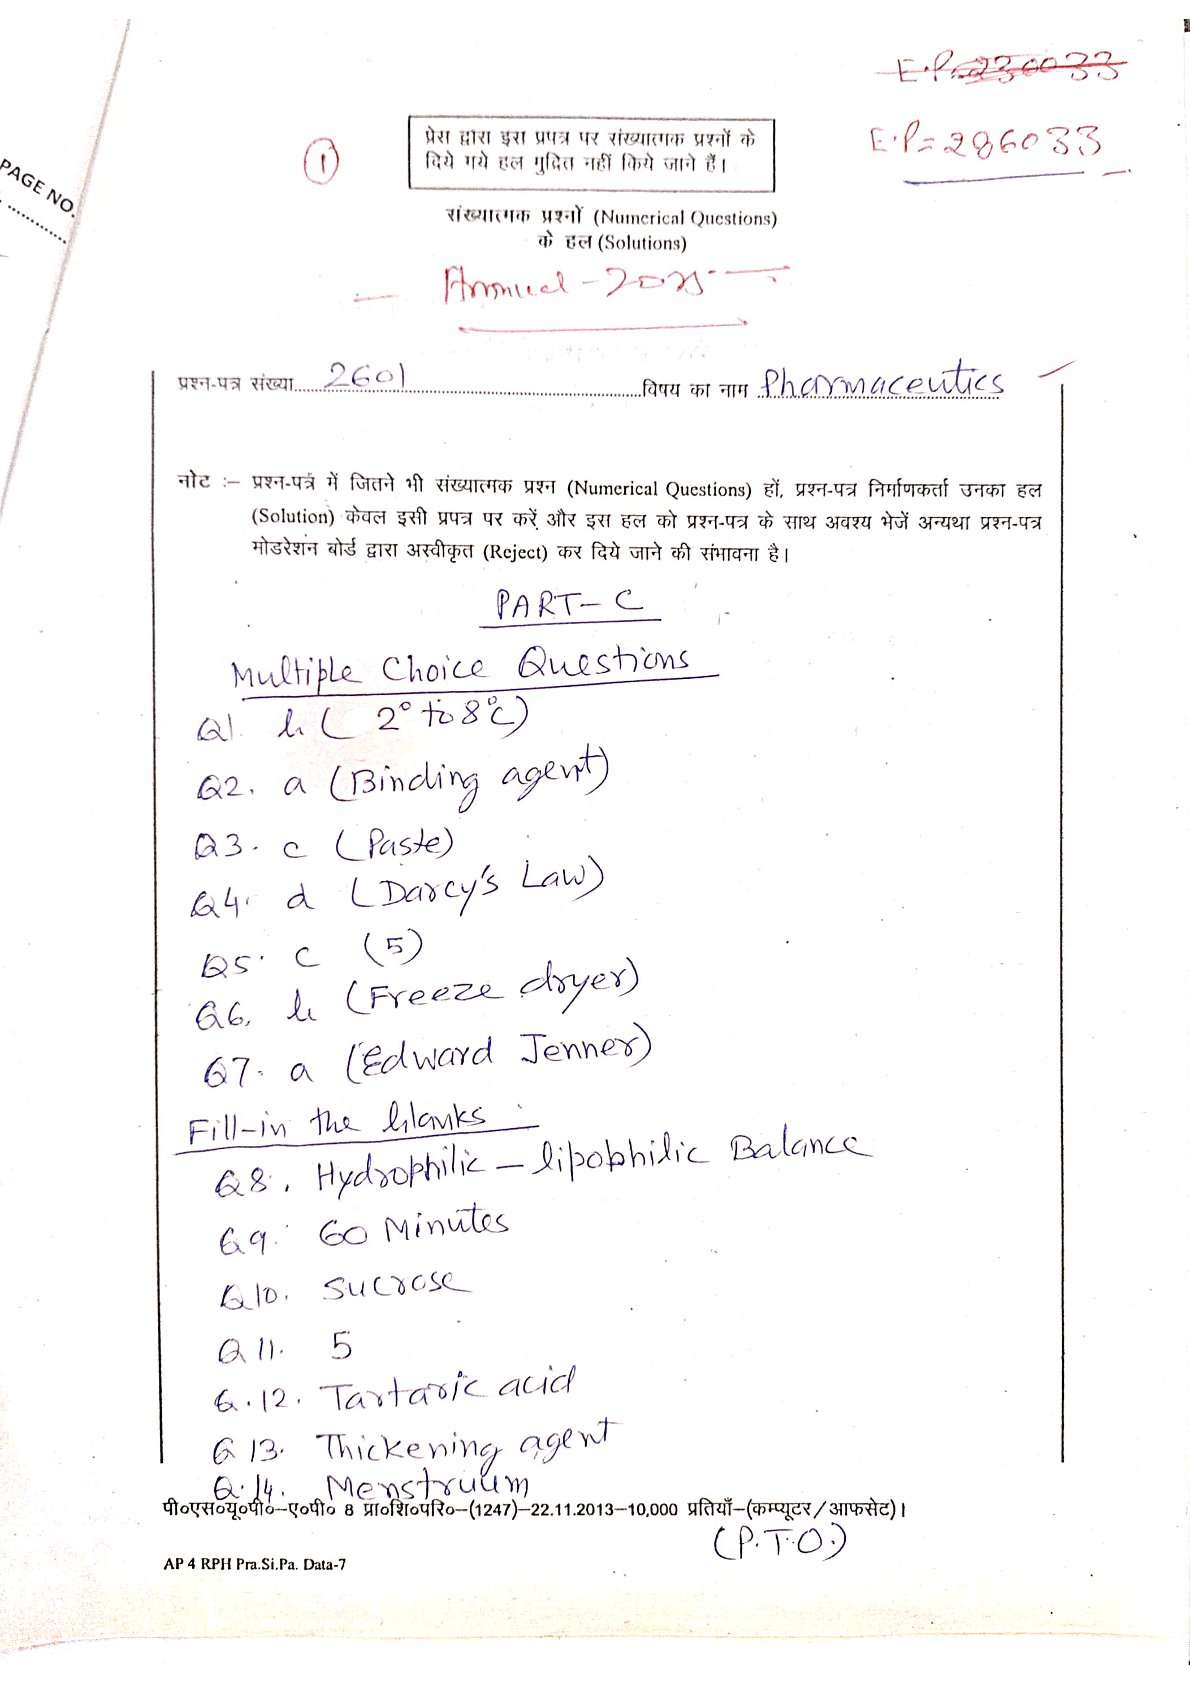 E.P=230033
E.P=286033
1
प्रेस द्वारा इस प्रपत्र पर संख्यात्मक प्रश्नों के
दिये गये हल मुद्रित नहीं किये जाने हैं।
संख्यात्मक प्रश्नों (Numerical Questions)
के हल (Solutions)
Annual-2025
PAGE NO.
प्रश्न-पत्र संख्या 2601 विषय का नाम Pharmaceutics
नोट :– प्रश्न-पत्र में जितने भी संख्यात्मक प्रश्न (Numerical Questions) हों, प्रश्न-पत्र निर्माणकर्ता उनका हल
(Solution) केवल इसी प्रपत्र पर करें और इस हल को प्रश्न-पत्र के साथ अवश्य भेजें अन्यथा प्रश्न-पत्र
मोडरेशन बोर्ड द्वारा अस्वीकृत (Reject) कर दिये जाने की संभावना है।
PART-C
Multiple Choice Questions
Q1. b (2° to 8°C)
Q2. a (Binding agent)
Q3. c (Paste)
Q4. d (Darcy's Law)
Q5. c (5)
Q6. b (Freeze dryer)
Q7. a (Edward Jenner)
Fill-in the blanks :
Q8. Hydrophilic – lipophilic Balance
Q9. 60 Minutes
Q10. Sucrose
Q11. 5
Q.12. Tartaric acid
Q13. Thickening agent
Q.14. Menstruum
पी०एस०यू०पी०–ए०पी० 8 प्रा०शि०परि०–(1247)–22.11.2013–10,000 प्रतियाँ–(कम्प्यूटर/आफसेट)।
(P.T.O.)
AP 4 RPH Pra.Si.Pa. Data-7